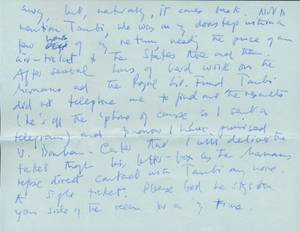 away but, naturally, it comes back. NOVA
mention Tambi, who was on my doorstep within a
few hours of my return needing the price of an
air-ticket to the States there and then.
After several hours of hard work on the
humans and the Royal Lit. Fund Tambi
did not telephone me to find out the results
(he's off the 'phone of course so I sent a
telegram) and tomorrow I have promised
V. Bonham-Carter that I will deliver the
ticket through his letter-box as the humans
refuse direct contact with Tambi any more.
A single ticket. Please God he stays on
your side of the ocean for a time.